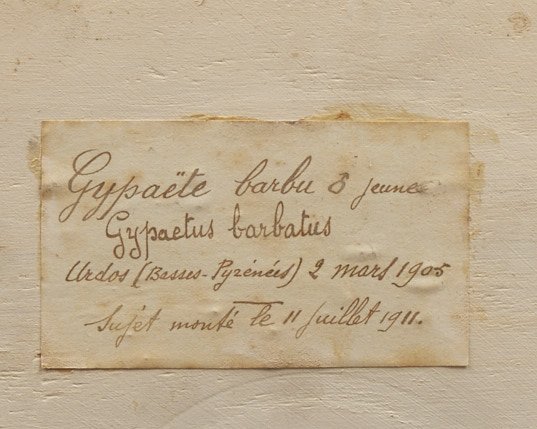 Gypaëte barbu ♂ jeune
Gypaetus barbatus
Urdos (Basses-Pyrénées) 2 mars 1905
Sujet monté le 11 Juillet 1911.